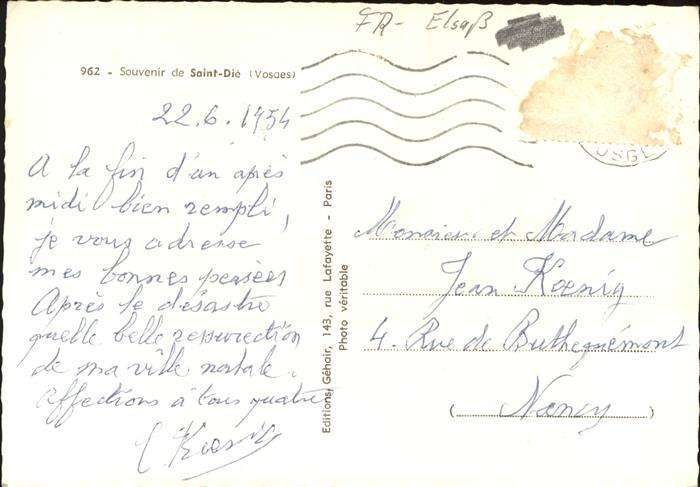 FR- Elsaß
962 - Souvenir de Saint-Dié (Vosges)
22.6.1954
A la fin d'un après
midi bien rempli,
je vous adresse
mes bonnes pensées
Après le désastre
quelle belle resurrection
de ma ville natale.
Affections à tous quatre
Editions Géhair, 143, rue Lafayette - Paris
Photo véritable
OSGE
Monsieur et Madame
Jean Kœnig
4. Rue de
(Nancy)